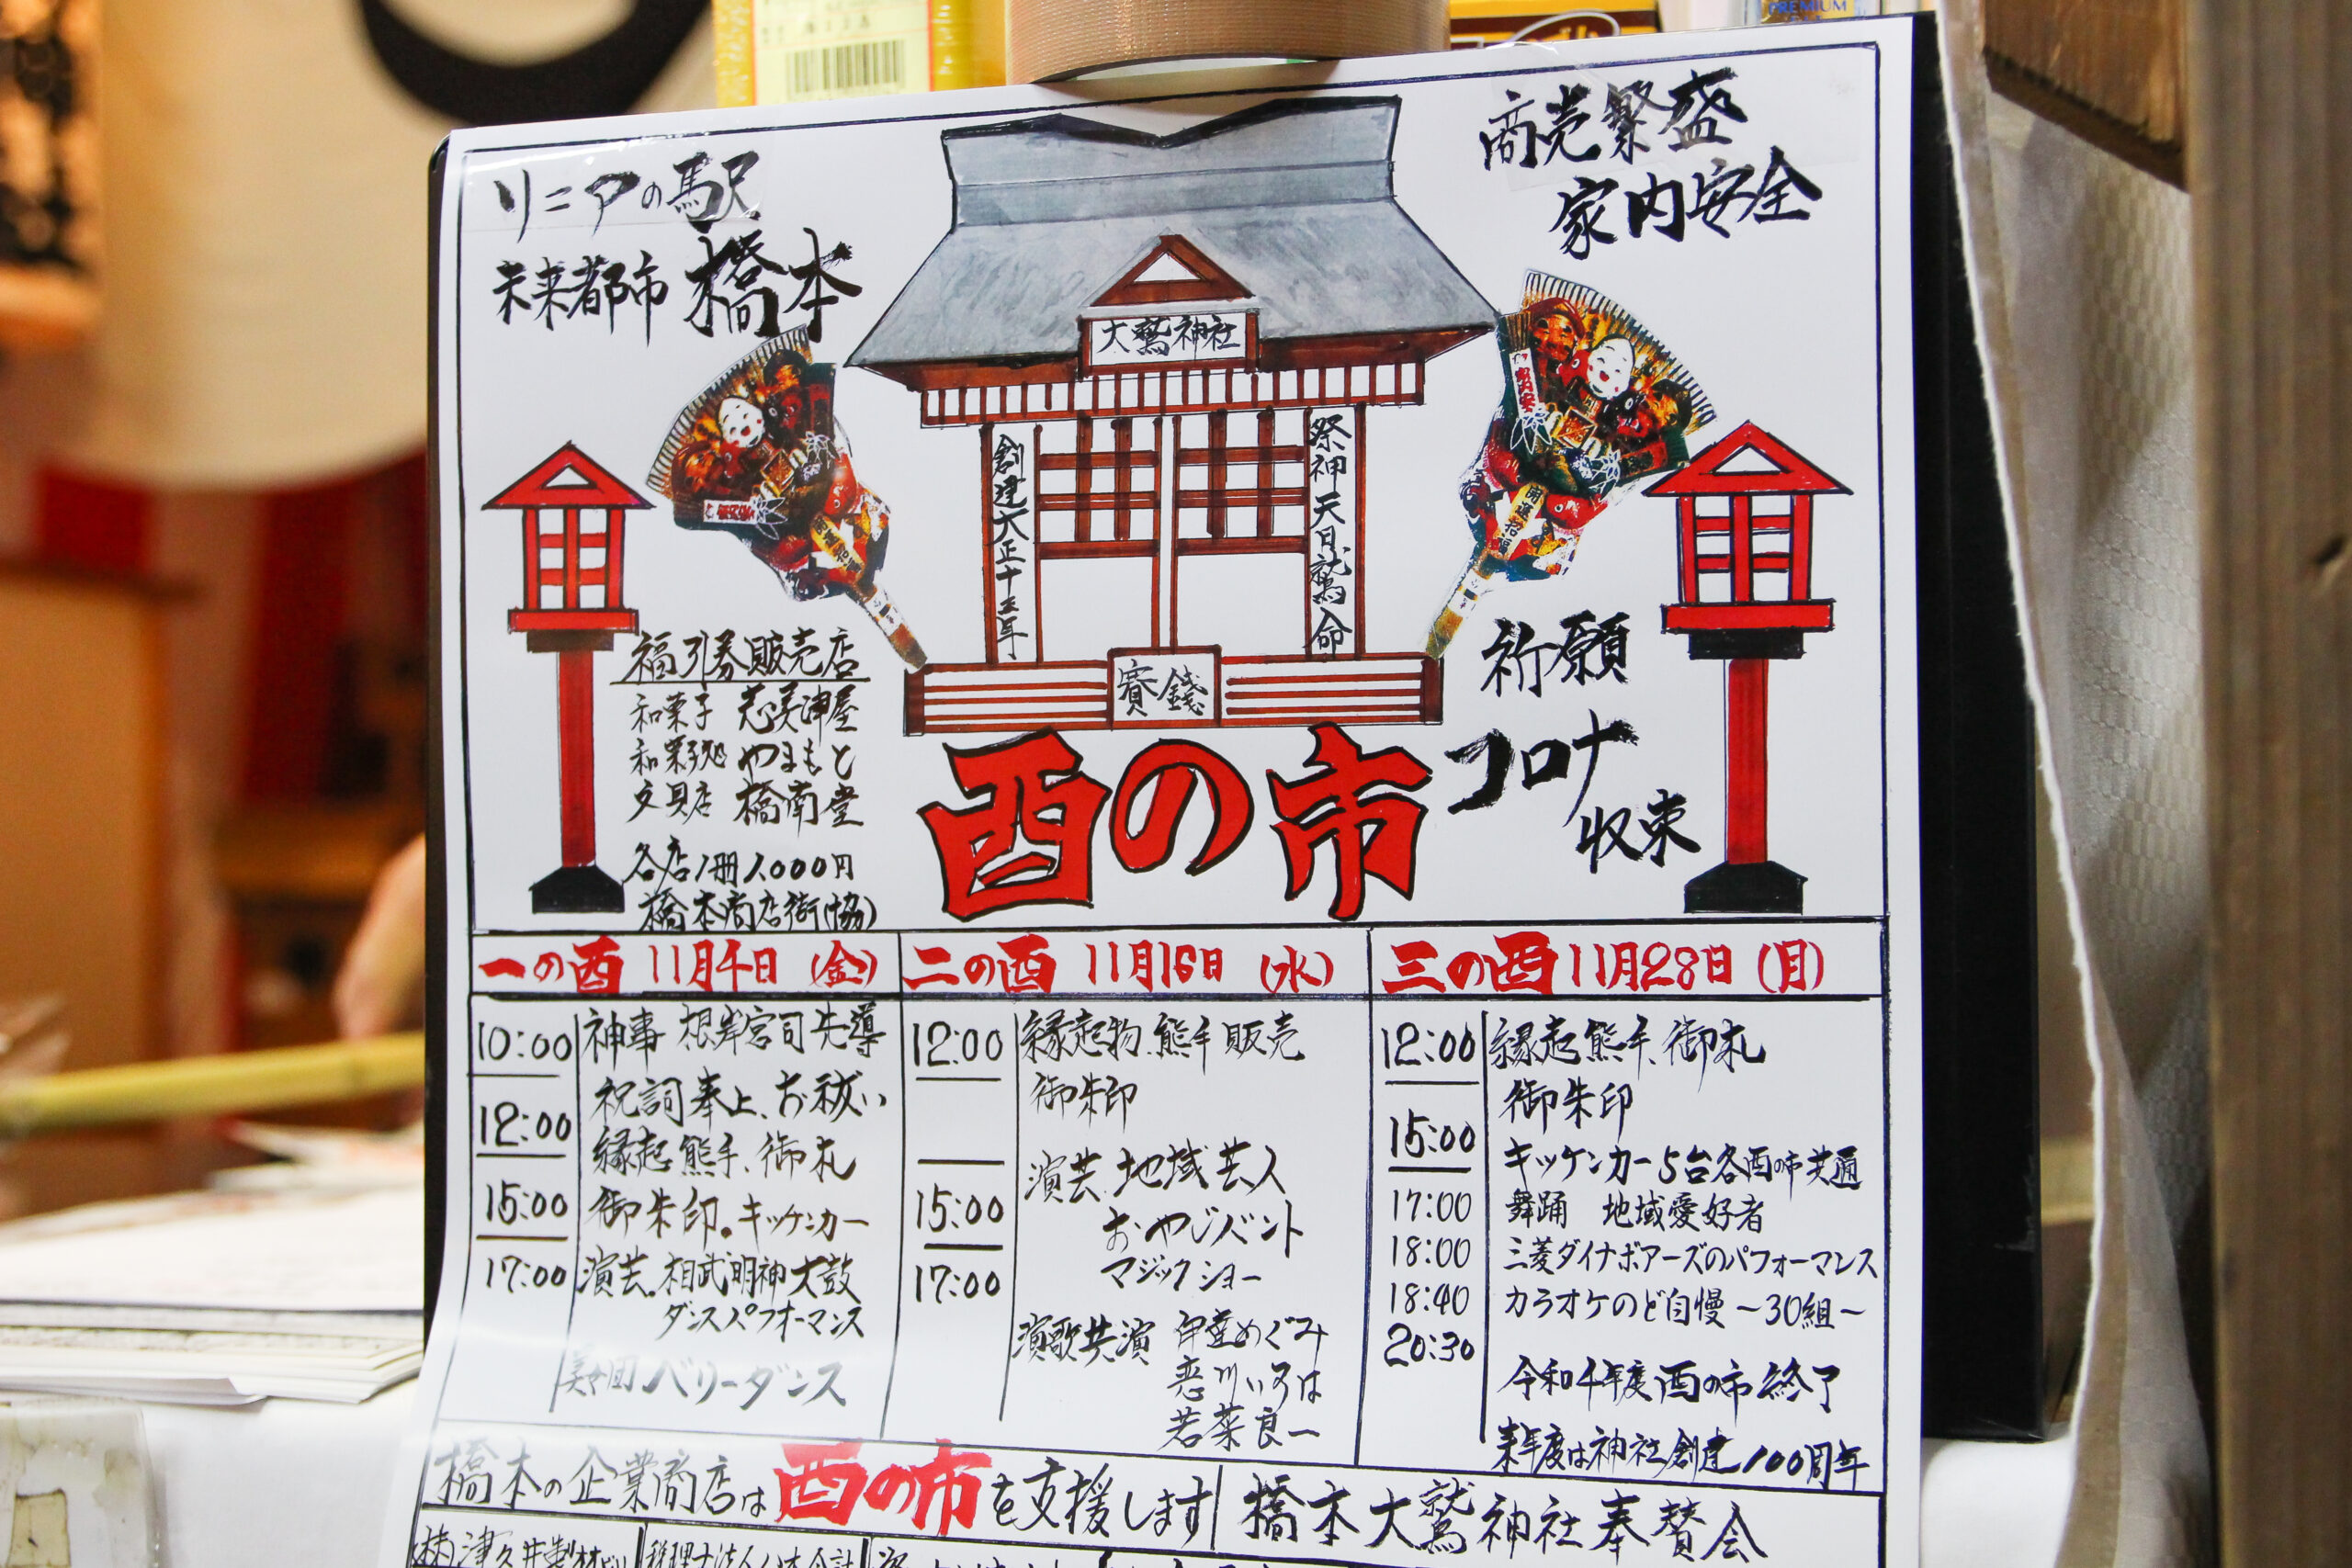 PREMIUM
リニアの駅
未来都市 橋本
商売繁盛
家内安全
大鷲神社
創建大正十三年
祭神天日鷲命
賽銭
福引券販売店
和菓子 志美津屋
和菓子処 やまもと
文具店 橋南堂
各店1冊1,000円
橋本商店街(協)
酉の市
祈願
コロナ
収束
一の酉 11月4日(金)
10:00 神事 根岸宮司先導
祝詞奉上、お祓い
12:00 縁起熊手、御札
15:00 御朱印。キッチンカー
17:00 演芸。相武明神太鼓
ダンスパフォーマンス
ベリーダンス
二の酉 11月16日(水)
12:00 縁起物、熊手販売
御朱印
演芸、地域芸人
15:00 おやじバント
17:00 マジックショー
演歌共演 伊萱めぐみ
恋川いろは
若菜良一
三の酉 11月28日(月)
12:00 縁起熊手、御札
御朱印
15:00 キッケンカー5台各酉の市共通
17:00 舞踊 地域愛好者
18:00 三菱ダイナボアーズのパフォーマンス
18:40 カラオケのど自慢~30組~
20:30
令和4年度酉の市終了
来年度は神社創建100周年
橋本の企業商店は酉の市を支援します
橋本大鷲神社奉賛会